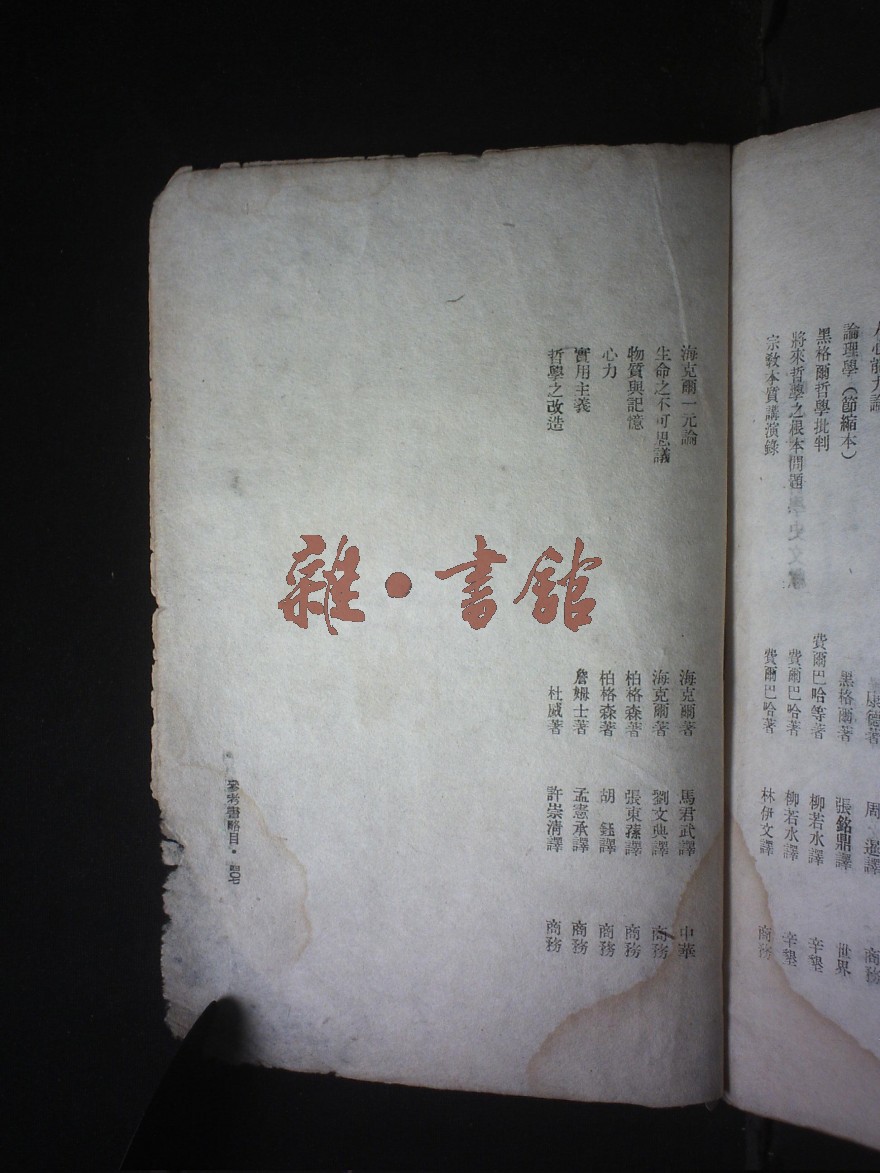 論理學（節縮本） 黑格爾著 張銘鼎譯 世界
黑格爾哲學批判 費爾巴哈等著 柳若水譯 辛墾
將來哲學之根本問題 費爾巴哈著 柳若水譯 辛墾
宗教本質講演錄 費爾巴哈著 林伊文譯 商務
海克爾一元論 海克爾著 馬君武譯 中華
生命之不可思議 海克爾著 劉文典譯 商務
物質與記憶 柏格森著 張東蓀譯 商務
心力 柏格森著 胡 鈺譯 商務
實用主義 詹姆士著 孟憲承譯 商務
哲學之改造 杜威著 許崇清譯 商務
參考書略目・四〇七
雜・書館